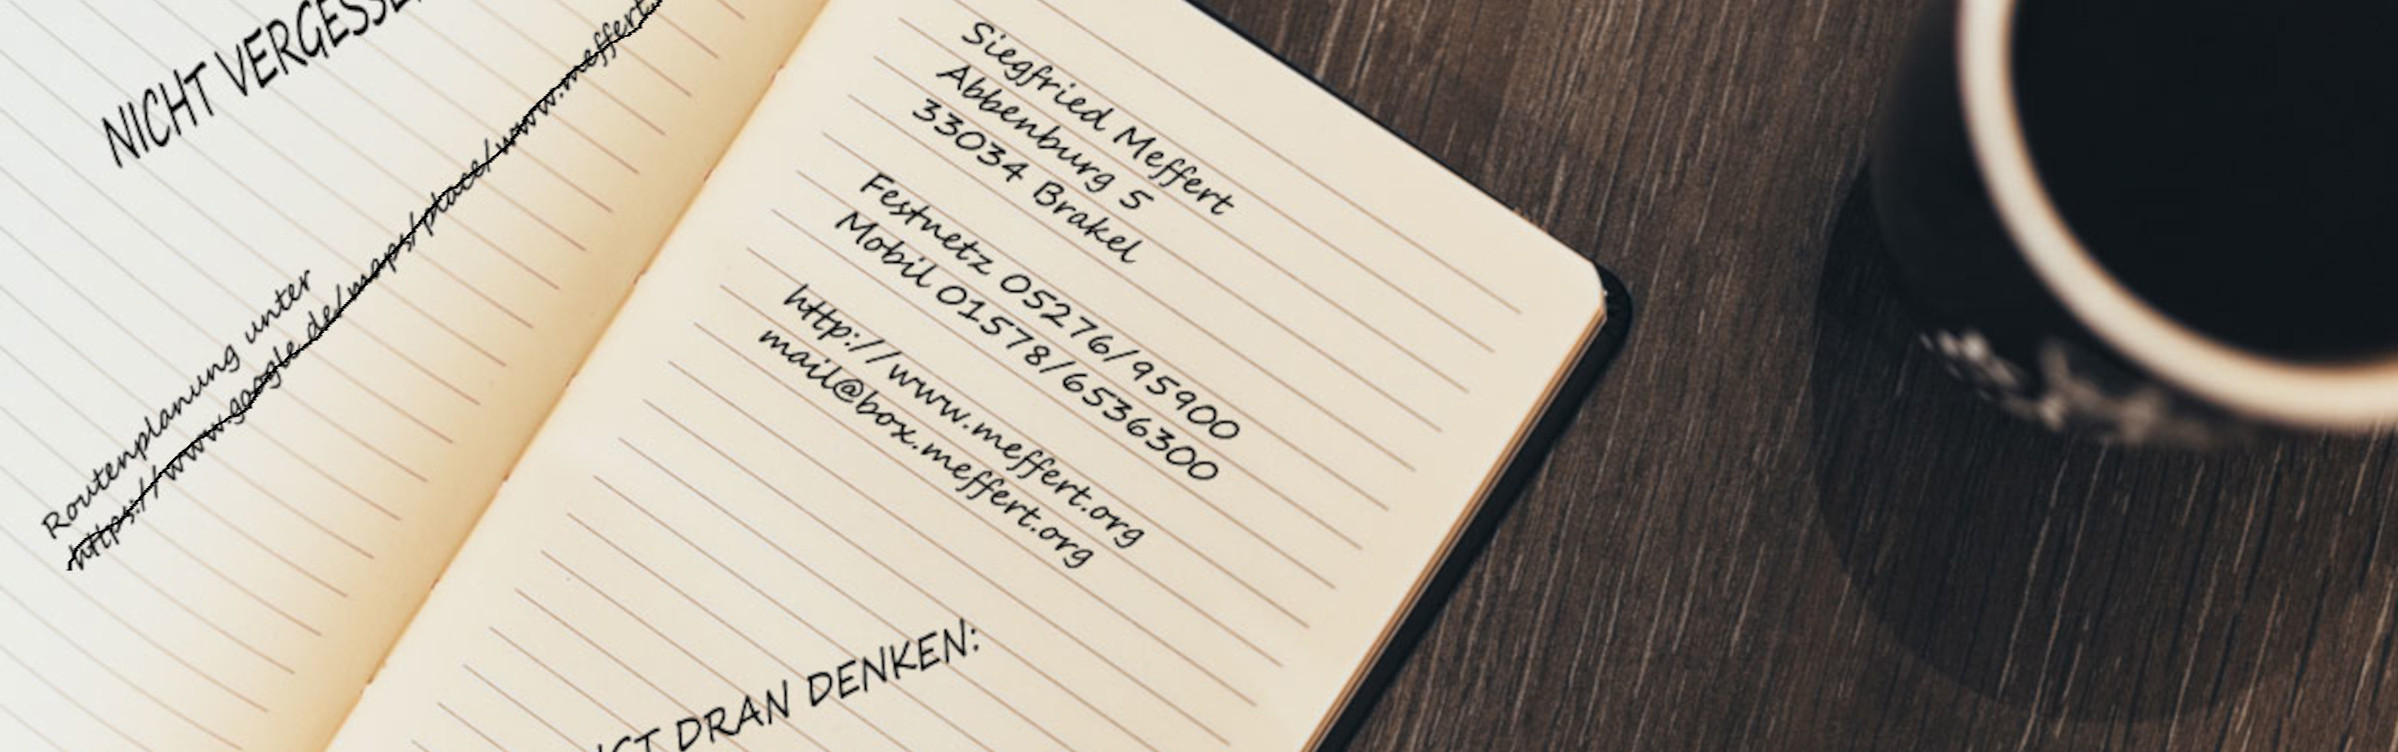 NICHT
Routenplanung unter
https://www.google.de/maps/place/www.meffert.
Siegfried Meffert
Abbenburg 5
33034 Brakel
Festnetz 05276/95900
Mobil 01578/6536300
http://www.meffert.org
mail@box.meffert.org
DRAN DENKEN: